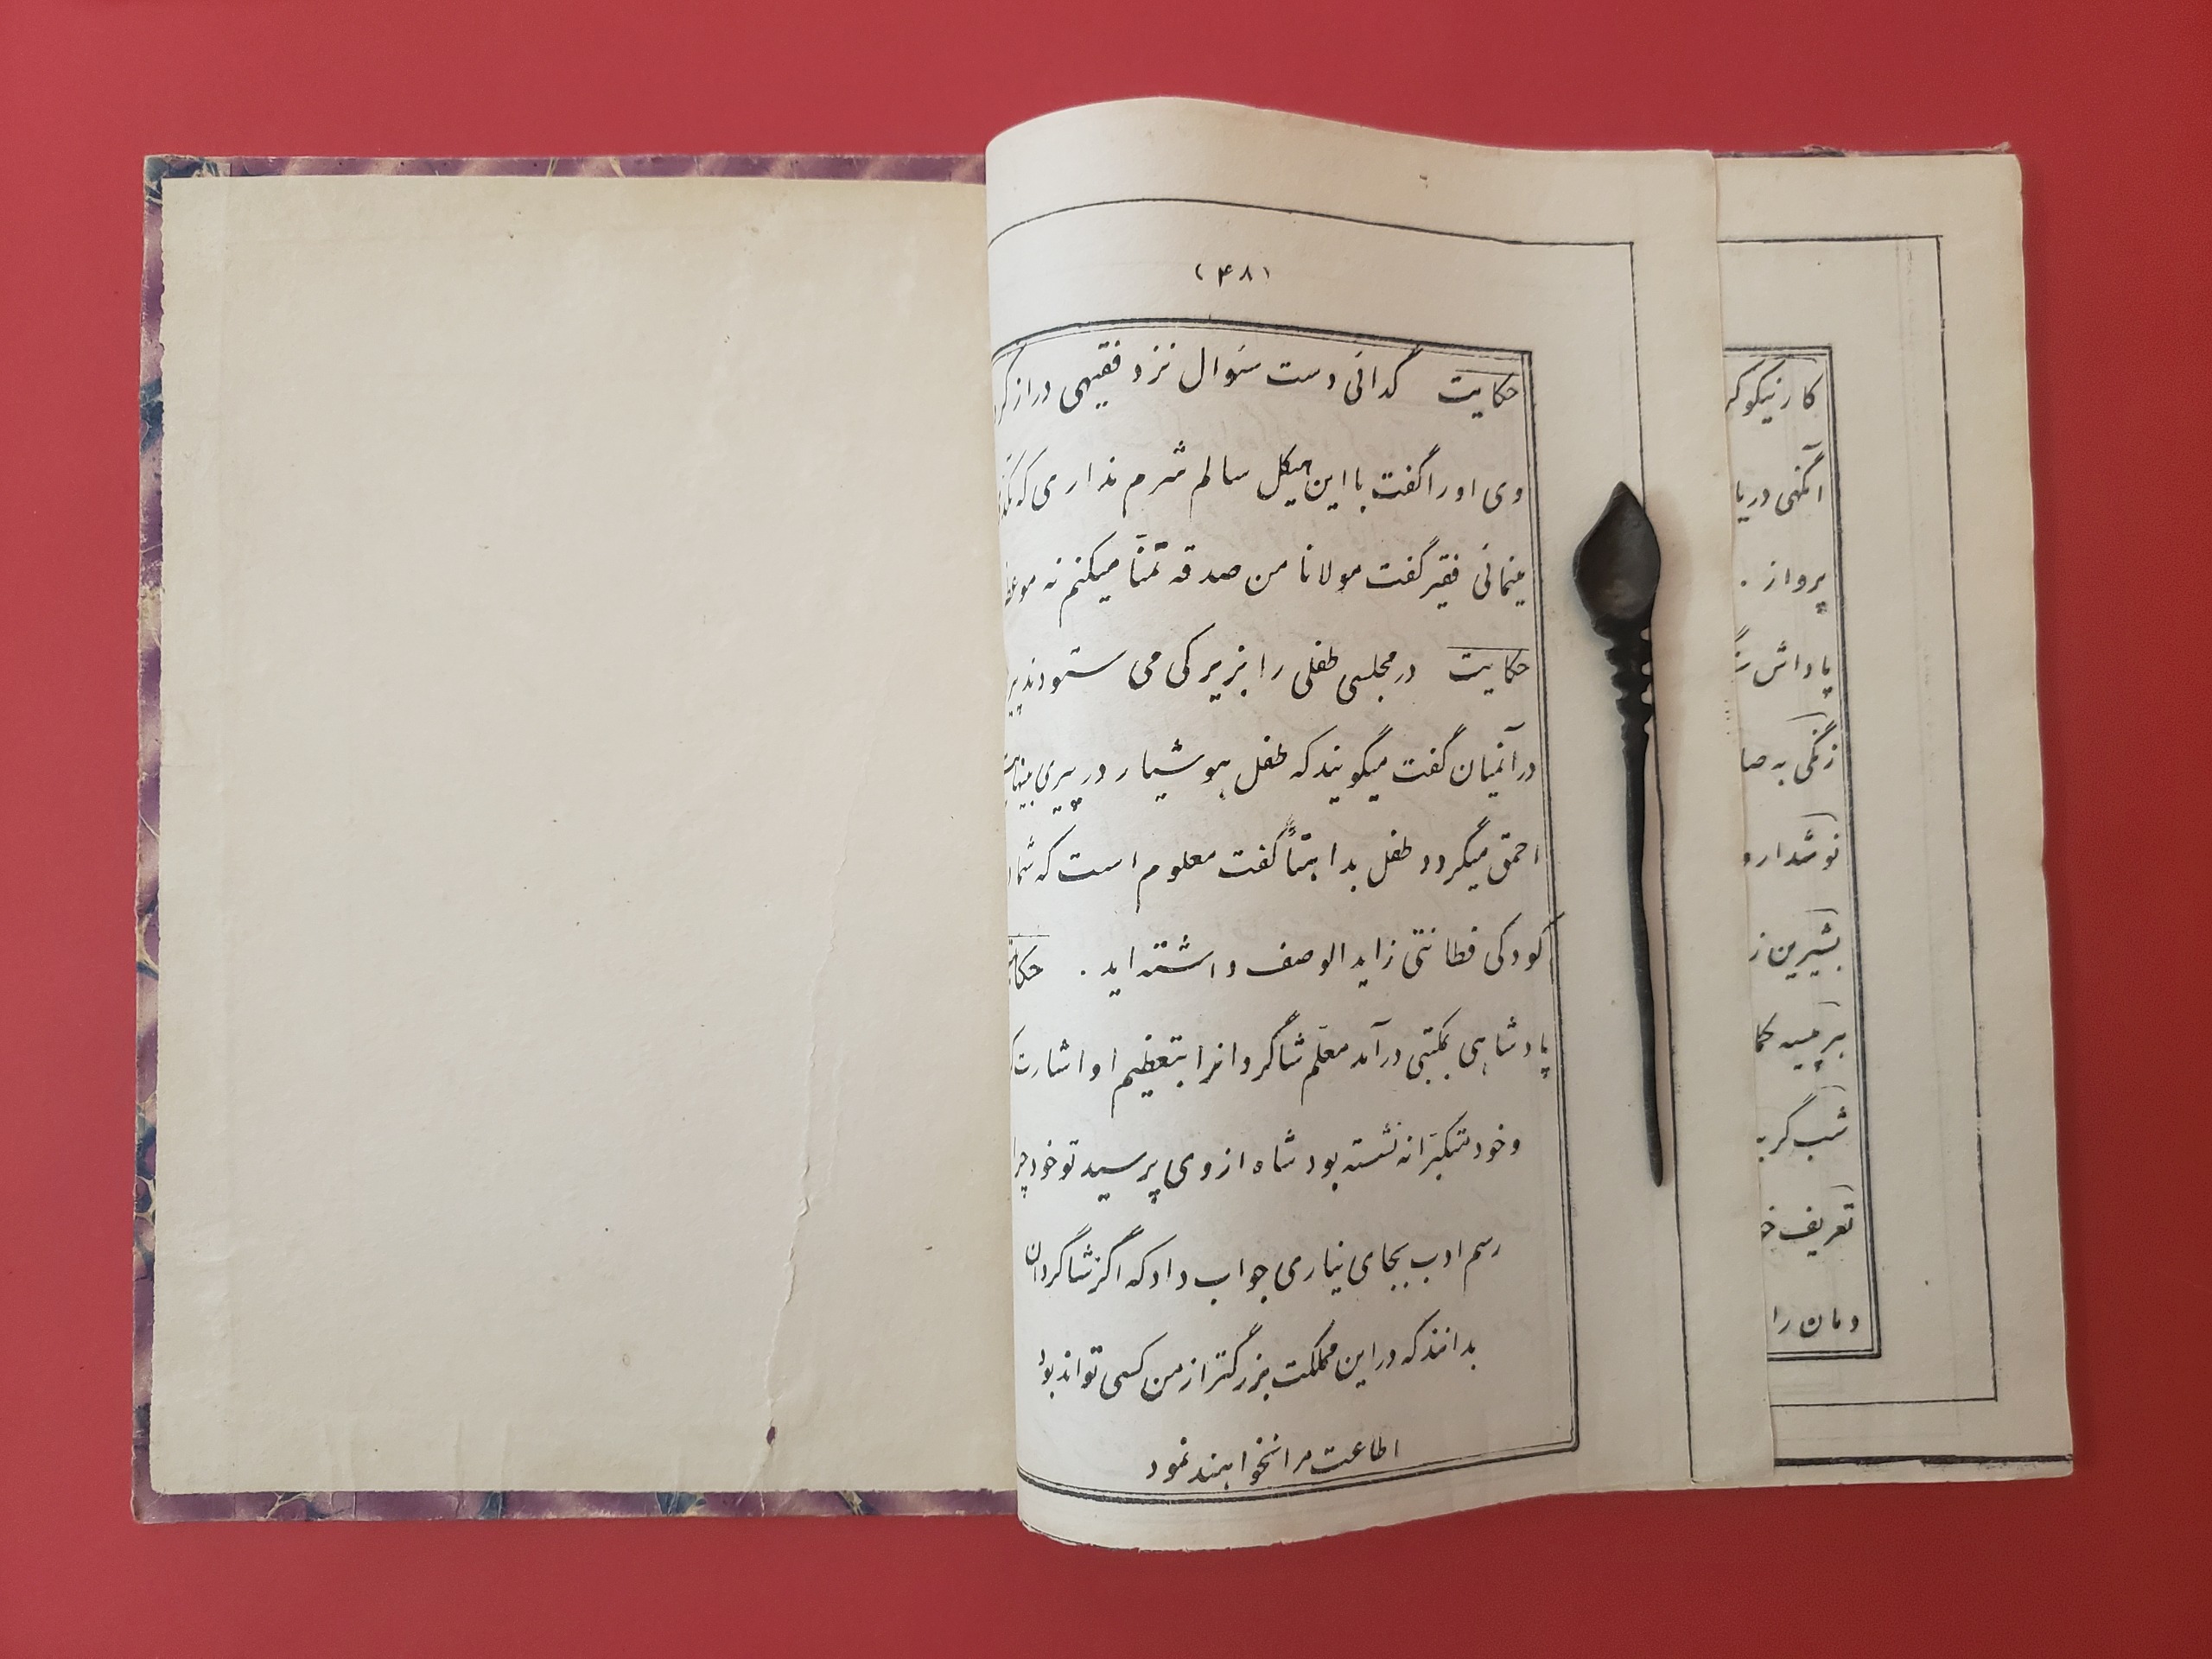 (۴۸)
حکایت گدائی دست سئوال نزد فقیهی دراز کرد
وی او را گفت با این هیکل سالم شرم نداری که
مینمائی فقیر گفت مولانا من صدقه تمنّا میکنم نه
حکایت در مجلسی طفلی را بزیرکی می ستودند
در آنمیان گفت میگویند که طفل هوشیار در پیری
احمق میگردد طفل بداهتاً گفت معلوم است که شما
کودکی فطانتی زاید الوصف داشته اید . حکایت
پادشاهی بمکتبی درآمد معلّم شاگردانرا بتعظیم او اشارت
و خود متکبّرانه نشسته بود شاه از وی پرسید تو خود چرا
رسم ادب بجای نیاری جواب داد که اگر شاگردان
بدانند که در این مملکت بزرگتر از من کسی تواند بود
اطاعت مرا نخواهند نمود
کار نیکو
آگهی
پرواز .
پاداش
زنگی به
نوشدارو
بشیرین
شب گربه
تعریف
دمان را